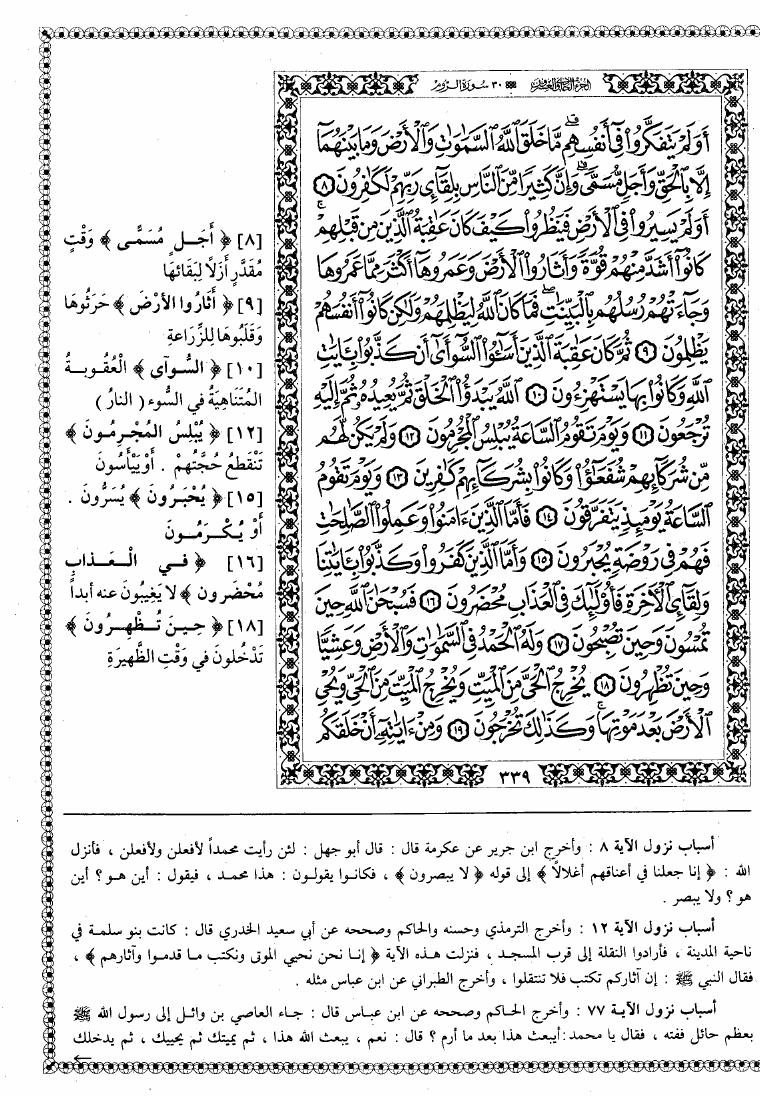 الجزء الحادي والعشرون ٣٠ سورة الروم
أَوَلَمْ يَتَفَكَّرُوا۟ فِىٓ أَنفُسِهِم ۗ مَّا خَلَقَ ٱللَّهُ ٱلسَّمَٰوَٰتِ وَٱلْأَرْضَ وَمَا بَيْنَهُمَآ
إِلَّا بِٱلْحَقِّ وَأَجَلٍ مُّسَمًّى ۗ وَإِنَّ كَثِيرًا مِّنَ ٱلنَّاسِ بِلِقَآئِ رَبِّهِمْ لَكَٰفِرُونَ ٨
أَوَلَمْ يَسِيرُوا۟ فِى ٱلْأَرْضِ فَيَنظُرُوا۟ كَيْفَ كَانَ عَٰقِبَةُ ٱلَّذِينَ مِن قَبْلِهِمْ ۚ
كَانُوٓا۟ أَشَدَّ مِنْهُمْ قُوَّةً وَأَثَارُوا۟ ٱلْأَرْضَ وَعَمَرُوهَآ أَكْثَرَ مِمَّا عَمَرُوهَا
وَجَآءَتْهُمْ رُسُلُهُم بِٱلْبَيِّنَٰتِ ۖ فَمَا كَانَ ٱللَّهُ لِيَظْلِمَهُمْ وَلَٰكِن كَانُوٓا۟ أَنفُسَهُمْ
يَظْلِمُونَ ٩ ثُمَّ كَانَ عَٰقِبَةَ ٱلَّذِينَ أَسَٰٓـُٔوا۟ ٱلسُّوٓأَىٰٓ أَن كَذَّبُوا۟ بِـَٔايَٰتِ
ٱللَّهِ وَكَانُوا۟ بِهَا يَسْتَهْزِءُونَ ١٠ ٱللَّهُ يَبْدَؤُا۟ ٱلْخَلْقَ ثُمَّ يُعِيدُهُۥ ثُمَّ إِلَيْهِ
تُرْجَعُونَ ١١ وَيَوْمَ تَقُومُ ٱلسَّاعَةُ يُبْلِسُ ٱلْمُجْرِمُونَ ١٢ وَلَمْ يَكُن لَّهُم
مِّن شُرَكَآئِهِمْ شُفَعَٰٓؤُا۟ وَكَانُوا۟ بِشُرَكَآئِهِمْ كَٰفِرِينَ ١٣ وَيَوْمَ تَقُومُ
ٱلسَّاعَةُ يَوْمَئِذٍ يَتَفَرَّقُونَ ١٤ فَأَمَّا ٱلَّذِينَ ءَامَنُوا۟ وَعَمِلُوا۟ ٱلصَّٰلِحَٰتِ
فَهُمْ فِى رَوْضَةٍ يُحْبَرُونَ ١٥ وَأَمَّا ٱلَّذِينَ كَفَرُوا۟ وَكَذَّبُوا۟ بِـَٔايَٰتِنَا
وَلِقَآئِ ٱلْأَخِرَةِ فَأُو۟لَٰٓئِكَ فِى ٱلْعَذَابِ مُحْضَرُونَ ١٦ فَسُبْحَٰنَ ٱللَّهِ حِينَ
تُمْسُونَ وَحِينَ تُصْبِحُونَ ١٧ وَلَهُ ٱلْحَمْدُ فِى ٱلسَّمَٰوَٰتِ وَٱلْأَرْضِ وَعَشِيًّا
وَحِينَ تُظْهِرُونَ ١٨ يُخْرِجُ ٱلْحَىَّ مِنَ ٱلْمَيِّتِ وَيُخْرِجُ ٱلْمَيِّتَ مِنَ ٱلْحَىِّ وَيُحْىِ
ٱلْأَرْضَ بَعْدَ مَوْتِهَا ۚ وَكَذَٰلِكَ تُخْرَجُونَ ١٩ وَمِنْ ءَايَٰتِهِۦٓ أَنْ خَلَقَكُم
٣٣٩
[٨] ﴿ أَجَلٍ مُسَمًّى ﴾ وَقْتٍ
مُقَدَّرٍ أَزَلًا لِبَقائهَا
[٩] ﴿ أَثَارُوا الأرْضَ ﴾ حَرَثُوهَا
وَقَلَبُوهَا لِلزِّرَاعةِ
[١٠] ﴿ السُّوآى ﴾ الْعُقُوبَةُ
المُتَنَاهِيَةُ في السُّوء ( النارُ )
[١٢] ﴿ يُبْلِسُ المُجْرِمُونَ ﴾
تَنْقَطعُ حُجَّتُهُمْ . أوْ يَيْأَسُونَ
[١٥] ﴿ يُحْبَرُونَ ﴾ يُسَرُّونَ .
أوْ يُكْرَمُونَ
[١٦] ﴿ في الْعَذابِ
مُحْضَرون ﴾ لا يَغِيبُونَ عنه أبداً
[١٨] ﴿ حِينَ تُظْهِرُونَ ﴾
تَدْخُلونَ في وَقْتِ الظَّهِيرَةِ
أسباب نزول الآية ٨ : وأخرج ابن جرير عن عكرمة قال : قال أبو جهل : لئن رأيت محمداً لأفعلن ولأفعلن ، فأنزل
الله : ﴿ إنا جعلنا في أعناقهم أغلالاً ﴾ إلى قوله ﴿ لا يبصرون ﴾ ، فكانوا يقولون : هذا محمد ، فيقول : أين هو ؟ أين
هو ؟ ولا يبصر .
أسباب نزول الآية ١٢ : وأخرج الترمذي وحسنه والحاكم وصححه عن أبي سعيد الخدري قال : كانت بنو سلمة في
ناحية المدينة ، فأرادوا النقلة إلى قرب المسجد ، فنزلت هذه الآية ﴿ إنا نحن نحيي الموتى ونكتب ما قدموا وآثارهم ﴾ ،
فقال النبي ﷺ : إن آثاركم تكتب فلا تنتقلوا ، وأخرج الطبراني عن ابن عباس مثله .
أسباب نزول الآية ٧٧ : وأخرج الحاكم وصححه عن ابن عباس قال : جاء العاصي بن وائل إلى رسول الله ﷺ
بعظم حائل ففته ، فقال يا محمد : أيبعث هذا بعد ما أرم ؟ قال : نعم ، يبعث الله هذا ، ثم يميتك ثم يحييك ، ثم يدخلك